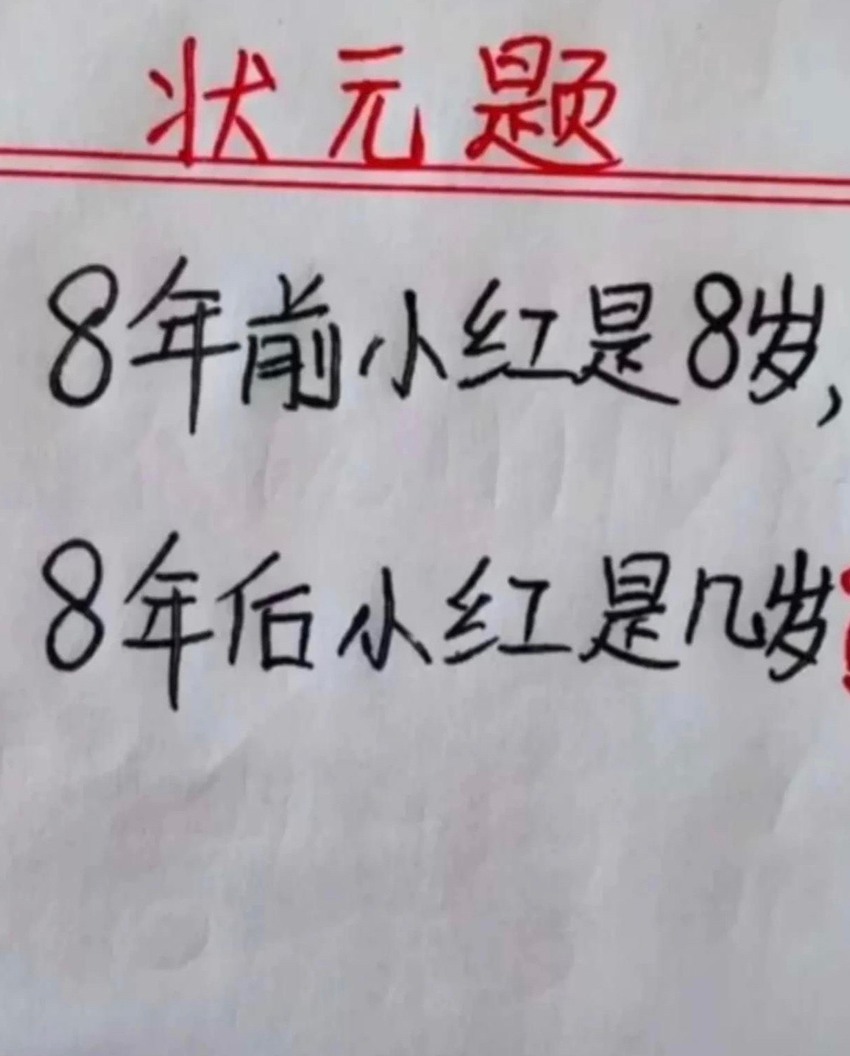 状元题
8年前小红是8岁,
8年后小红是几岁